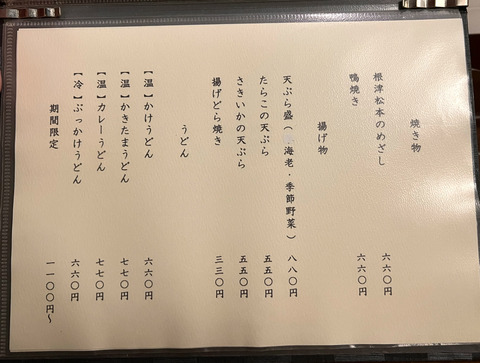 焼き物
根津松本のめざし 六六〇円
鴨焼き 六六〇円
揚げ物
天ぷら盛（海老・季節野菜） 八八〇円
たらこの天ぷら 五五〇円
さきいかの天ぷら 五五〇円
揚げどら焼き 三三〇円
うどん
【温】かけうどん 六六〇円
【温】かきたまうどん 七七〇円
【温】カレーうどん 七七〇円
【冷】ぶっかけうどん 六六〇円
期間限定 一一〇〇円～